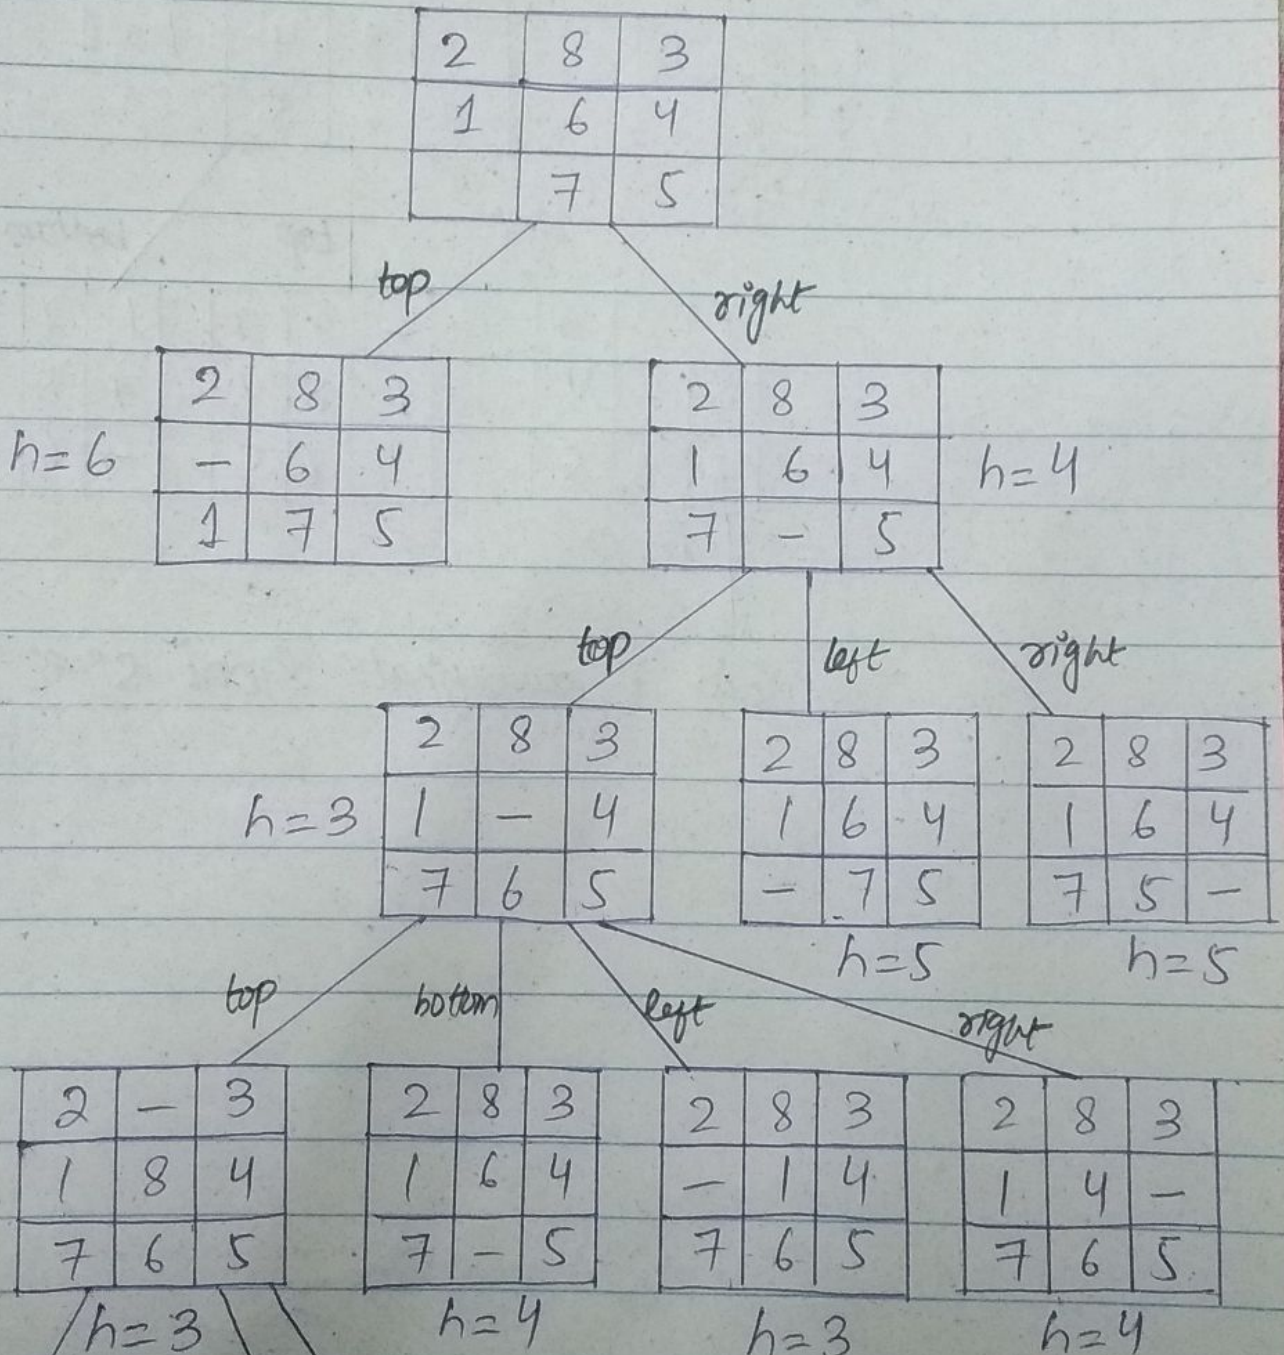 2 8 3
1 6 4
7 5
top right
2 8 3
- 6 4
1 7 5
h=6
2 8 3
1 6 4
7 - 5
h=4
top left right
2 8 3
1 - 4
7 6 5
h=3
2 8 3
1 6 4
- 7 5
h=5
2 8 3
1 6 4
7 5 -
h=5
top bottom left right
2 - 3
1 8 4
7 6 5
h=3
2 8 3
1 6 4
7 - 5
h=4
2 8 3
- 1 4
7 6 5
h=3
2 8 3
1 4 -
7 6 5
h=4